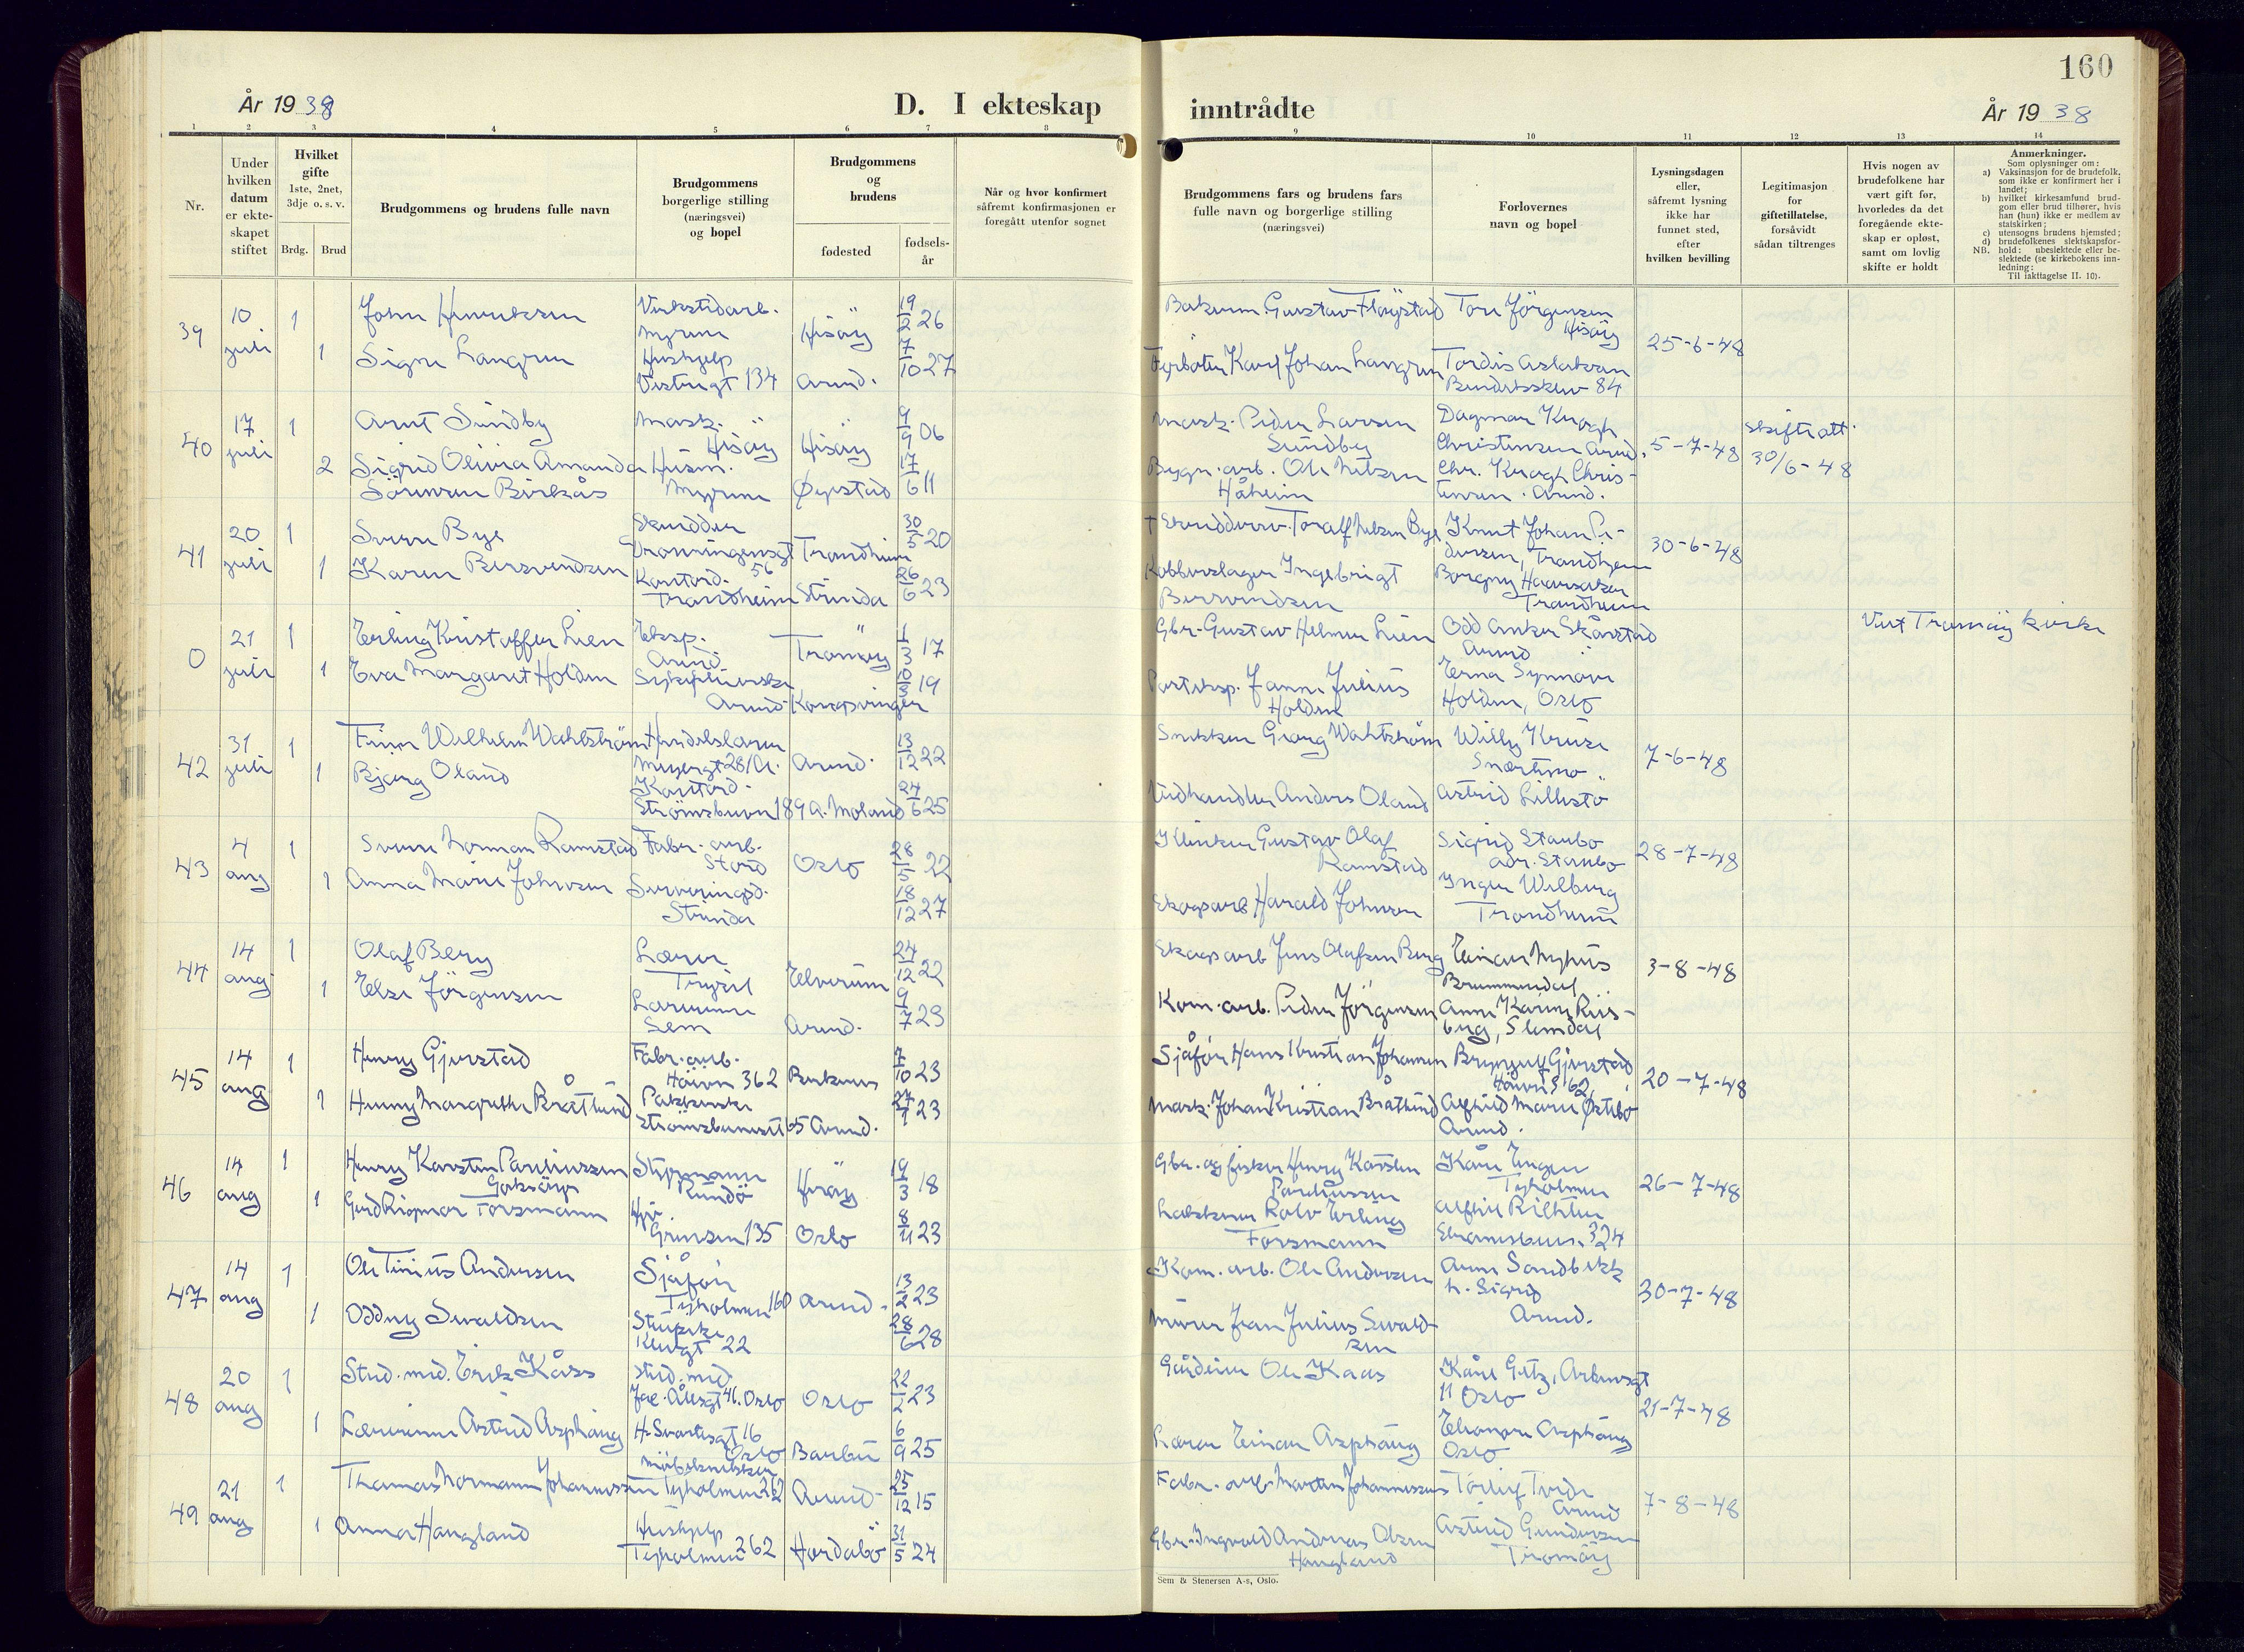 160
År 1938
D. I ekteskap
inntrådte
År 1938
1 2 3 4 5 6 7 8
9 10 11 12 13 14
Nr.
Under
hvilken
datum
er ekte-
skapet
stiftet
Hvilket
gifte
1ste, 2net,
3dje o. s. v.
Brdg.
Brud
Brudgommens og brudens fulle navn
Brudgommens
borgerlige stilling
(næringsvei)
og bopel
Brudgommens
og
brudens
fødested
fødsels-
år
Når og hvor konfirmert
såfremt konfirmasjonen er
foregått utenfor sognet
Brudgommens fars og brudens fars
fulle navn og borgerlige stilling
(næringsvei)
Forlovernes
navn og bopel
Lysningsdagen
eller,
såfremt lysning
ikke har
funnet sted,
efter
hvilken bevilling
Legitimasjon
for
giftetillatelse,
forsåvidt
sådan tiltrenges
Hvis nogen av
brudefolkene har
vært gift før,
hvorledes da det
foregående ekte-
skap er opløst,
samt om lovlig
skifte er holdt
Anmerkninger.
Som oplysninger om:
a) Vaksinasjon for de brudefolk,
som ikke er konfirmert her i
landet;
b) hvilket kirkesamfund brud-
gom eller brud tilhører, hvis
han (hun) ikke er medlem av
statskirken;
c) utensogns brudens hjemsted;
d) brudefolkenes slektskapsfor-
NB. hold: ubeslektede eller be-
slektede (se kirkebokens inn-
ledning:
Til iakttagelse II. 10).
39
10
juli
1
John Henriksen
Verkstedarb.
Myrene
Hisøy
19/2 26
Gustav Fløystad
Tore Jörgensen
Hisøy
25-6-48
1
Signe Langren
Hushjelp
Vestregt 134
Arend.
7/10 27
Karl Johan Langren
Tordis Aslaksen
Bendiksklev 84
40
17
juli
1
Arnt Sundby
Mask.
Hisøy
Hisøy
9/9 06
Mask. Peder Larsen
Sundby
Dagmar Kragh
Christensen Arend.
5-7-48
skifteatt.
30/6-48
2
Sigrid Olivia Amanda
Sörensen Birkås
Husm.
Myrene
Øyestad
17/6 11
Bygn.arb. Ole Nilsen
Håheim
Chr. Kragh Chris-
tensen. Arend.
41
20
juli
1
Sverre Bye
Skredder
Dronningensgt
56
Trondheim
30/5 20
† Skredderm. Toralf Nilsen Bye
Knut Johan Pe-
dersen, Trondhjem
30-6-48
1
Karen Bersvendsen
Kontord.
Trondheim
Strinda
26/6 23
Kobberslager Ingebrigt
Bersvendsen
Borgny
Trondheim
0
21
juli
1
Erling Kristoffer Lien
Eksp.
Arend
Tromøy
1/3 17
Gbr. Gustav Helmer Lien
Odd Anker Skårstad
Arend
Viet Tromöy kirke
1
Eva Margaret Holden
Sykepleierske
Arend
Kongsvinger
10/3 19
Janne Julius
Holden
Erna Synnøve
Holden, Oslo
42
31
juli
1
Finn Wilhelm Wahlstrøm
Handelslærer
Meyergt 28/
Arend.
13/12 22
Snekker Georg Wahlstrøm
Willy Kruse
Snartemo
7-6-48
1
Bjørg Oland
Kontord.
Strømsbuvn 189
A. Moland
24/6 25
Vedhandler Anders Oland
Astrid Lillestø
43
4
aug
1
Sverre Norman Ramstad
Fabr. arb.
Stord
Oslo
28/5 22
Gustav Olaf
Ramstad
Sigrid Staubo
adr. Staubo
28-7-48
1
Anna Marie Johnsen
Serveringsd.
Strinda
18/12 27
Skogsarb Harald Johnsen
Inger Wilberg
Trondheim
44
14
aug
1
Olaf Berg
Lærer
Trysil
Elverum
24/12 22
Skogsarb Jens Olafsen Berg
Einar Nyhus
Brummundal
3-8-48
1
Else Jörgensen
Lærerinne
Sem
Arend.
9/7 23
Kom. arb. Peder Jörgensen
Anne Karine Riis-
berg, Slemdal
45
14
aug
1
Henry Gjerstad
Fabr. arb.
Håvn 362
7/10 23
Sjåfør Hans Kristian Johansen
Brynjulf Gjerstad
Håvn 362
20-7-48
1
Henny Margrethe Bråtlund
Pakkerske
Arend.
27/1 23
Mask. Johan Kristian Bråtlund
Alfhild Marie Østebø
Arend.
46
14
aug
1
Henry Karsten Paulinussen
Goksöyr
Styrmann
Rundö
Heröy
19/3 18
Gbr. og fisker Henry Karsten
Paulinussen
Kåre Engen
Tyholmen
26-7-48
1
Gerd Rigmor Forsmann
Hjv.
Grensen 135
Oslo
8/11 23
Rolv Erling
Forsmann
Alfhil Richter
Strømsbuvn. 324
47
14
aug
1
Ole Tinius Andersen
Sjåför
Tyholmen 160
Arend.
13/2 23
Kom. arb. Ole Andersen
Arne Sandbekk
h. Sigrid
Arend.
30-7-48
1
Oddny Svaldsen
Klevgt 22
28/6 28
Murer Jean Julius Svald-
sen
48
20
aug
1
Stud. med. Erik Kåss
Stud. med
Jac. Ållsgt 41. Oslo
Oslo
22/2 23
Gårdeier Ole Kaas
Kåre Getz,
11 Oslo
21-7-48
1
Lærerinne Astrid Asphaug
H. Svartesgt 16
Oslo
Barbu
6/9 25
Lærer Einar Asphaug
Eleonore Asphaug
Oslo
49
21
aug
1
Thomas Normann Johannessen
Møbelsnekker
Tyholmen 262
Arend
25/12 15
Fabr. arb. Marten Johannessen
Torleif Tvede
Arend
7-8-48
1
Anna Haugland
Hushjelp
Tyholmen 262
Hordabö
31/5 24
Gbr. Ingvald Andreas Olsen
Haugland
Astrid Gundersen
Tromöy
Sem & Stenersen A-s, Oslo.